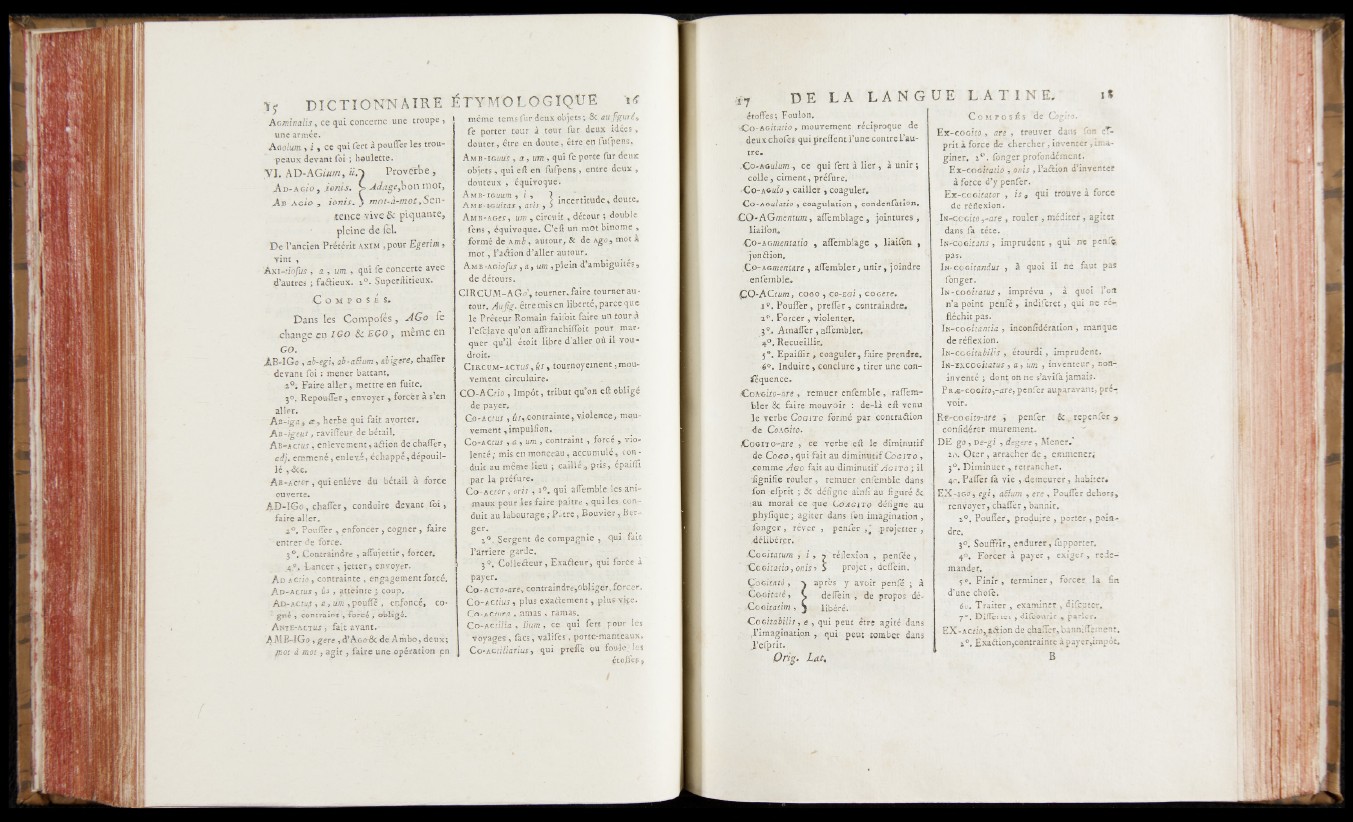 15 DICTIONNAIRE ÉTYMOLOGIQUE 16
Agminalis, ce qui concerne une troupe,
une armée.
Agolum, i, ce qui sert à pousser les trou-
peaux devant soi ; houlette.
VI. AD-AGium, ii. } Proverbe,
Ad-agio, ionis. } Adage, bon mot,
Ab-agio, ionis. } mot-à-mot, Sen-
tence vive & piquante,
pleine de sel.
De l'ancien Prétérit axim, pour Egerim,
vint,
Axi-tiosus, a, um, qui se concerte avec
d'autres ; factieux. 2°. Superstitieux.
Composés.
Dans les Composés, AGo se
change en IGO & EGO, même en
GO.
AB-IGo, ab-egi, ab-actum, abigere, chasser
devant soi : mener battant.
2°. Faire aller, mettre en fuite.
3°. Repousser, envoyer, forcer à s'en
aller.
Ab-iga, æ, herbe qui fait avorter.
Ab-igeus, ravisseur de bétail.
Ab-actus, enlevement, action de chasser,
adj. emmené, enlevé, échappé, dépouil-
lé, &c.
Ab-actor, qui enlève du bétail à force
ouverte.
AD-IGo, chasser, conduire devant soi,
faire aller.
2°. Pousser, enfoncer, cogner, faire
entrer de force.
3°. Contraindre, assujettir, forcer.
4°. Lancer, jetter, envoyer.
Ad-actio, contrainte, engagement forcé.
Ad-actus, ûs, atteinte ; coup.
Ad-actus, a, um, poussé, enfoncé, co-
gné, contraint, forcé, obligé.
Ante-actus, fait avant.
AMB-IGo, gere, d'Ago & de Ambo, deux ;
mot à mot, agir, faire une opération en
même tems sur deux objets ; & au figuré,
se porter tour à tour sur deux idées,
douter, être en doute, être en suspens.
Amb-iguus, a, um, qui se porte sur deux
objets, qui est en suspens, entre deux,
douteux, équivoque.
Amb-iguum, i, }
Amb-iguitas, atis, } incertitude, doute.
Amb-ages, um, circuit, détour ; double
sens, équivoque. C'est un mot binome,
formé de amb, autour, & de ago, mot à
mot, l'action d'aller autour.
Amb-agiosus, a, um, plein d'ambiguités,
de détours.
CIRCUM-AGo, tourner, faire tourner au-
tour. Au fig. être mis en liberté, parce que
le Préteur Romain faisoit faire un tour à
l'esclave qu'on affranchissoit pour mar-
quer qu'il étoit libre d'aller où il vou-
droit.
Circum-actus, ûs, tournoyement, mou-
vement circulaire.
CO-ACtio, Impôt, tribut qu'on est obligé
de payer.
Co-actus, ûs, contrainte, violence, mou-
vement, impulsion.
Co-actus, a, um, contraint, forcé, vio-
lenté ; mis en monceau, accumulé, con-
duit au même lieu ; caillé, pris, épaissi
par la présure.
Co-actor, oris, 1°. qui assemble les ani-
maux pour les faire paître, qui les con-
duit au labourage ; Pâtre, Bouvier, Ber-
ger.
2°. Sergent de compagnie, qui fait
l'arriere garde.
3°. Collecteur, Exacteur, qui force à
payer.
Co-acto-are, contraindre, obliger, forcer.
Co-actius, plus exactement, plus vîte.
Co-actura, amas, ramas.
Co-actilia, lium, ce qui sert pour les
voyages, sacs, valises, porte-manteaux.
Co-actillarius, qui presse ou foule les
étoffes,
17 DE LA LANGUE LATINE. 18
étoffes ; Foulon.
Co-agitatio, mouvement réciproque de
deux choses qui pressent l'une contre l'au-
tre.
Co-agulum, ce qui sert à lier, à unir ;
colle, ciment, présure.
Co-agulo, cailler, coaguler.
Co-agulatio, coagulation, condensation.
CO-AGmentum, assemblage, jointures,
liaison.
Co-agmentatio, assemblage, liaison,
jonction.
Co-agmentare, assembler, unir, joindre
ensemble.
CO-ACtum, cogo, co-egi, cogere.
1°. Pousser, presser, contraindre.
2°. Forcer, violenter.
3°. Amasser, assembler.
4°. Recueillir.
5°. Epaissir, coaguler, faire prendre.
6°. Induire, conclure, tirer une con-
séquence.
Coagito-are, remuer ensemble, rassem-
bler & faire mouvoir : de-là est venu
le verbe Cogito formé par contraction
de Coagito.
Cogito-are, ce verbe est le diminutif
de Cogo, qui fait au diminutif Cogito,
comme Ago fait au diminutif Agito ; il
signifie rouler, remuer ensemble dans
son esprit ; & désigne ainsi au figuré &
au moral ce que Coagito désigne au
physique ; agiter dans son imagination,
songer, rêver, penser, projetter,
délibérer.
Cogitatum, i, } réflexion, pensée,
Cogitatio, onis, } projet, dessein.
Cogitatò, } après y avoir pensé ; à
Cogitatè, } dessein, de propos dé-
Cogitatim, } libéré.
Cogitabilis, e, qui peut être agité dans
l'imagination, qui peut tomber dans
l'esprit.
Orig. Lat.
Composés de Cogito.
Ex-cogito, are, trouver dans son es-
prit à force de chercher, inventer, ima-
giner. 2°. songer profondément.
Ex-cogitatio, onis, l'action d'inventer
à force d'y penser.
Ex-cogitator, is, qui trouve à force
de réflexion.
In-cogito,-are, rouler, méditer, agiter
dans sa tête.
In-cogitans, imprudent, qui ne pense
pas.
In-cogitandus, à quoi il ne faut pas
songer.
In-cogitatus, imprévu, à quoi l'on
n'a point pensé, indiscret, qui ne ré-
fléchit pas.
In-cogitantia, inconsidération, manque
de réflexion.
In-cogitabilis, étourdi, imprudent.
In-excogitatus, a, um, inventeur, non-
inventé ; dont on ne s'avisa jamais.
Præ-cogito,-are, penser auparavant, pré-
voir.
Re-cogito-are, penser & repenser,
considérer murement.
DE go, de-gi, degere, Mener.
2°. Oter, arracher de, emmener ;
3°. Diminuer, retrancher.
4°. Passer sa vie, demeurer, habiter.
EX-igo, egi, actum, ere, Pousser dehors,
renvoyer, chasser, bannir.
2°. Pousser, produire, porter, poin-
dre.
3°. Souffrir, endurer, supporter.
4°. Forcer à payer, exiger, rede-
mander.
5°. Finir, terminer, forcer la fin
d'une chose.
6°. Traiter, examiner, discuter.
7°. Disserter, discourir, parler.
EX-actio, action de chasser, bannissement.
2°. Exaction, contrainte à payer, impôt.
B